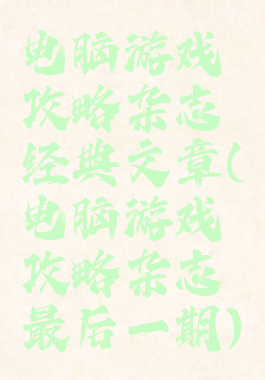 电脑游戏
攻略杂志
经典文章(
电脑游戏
攻略杂志
最后一期)